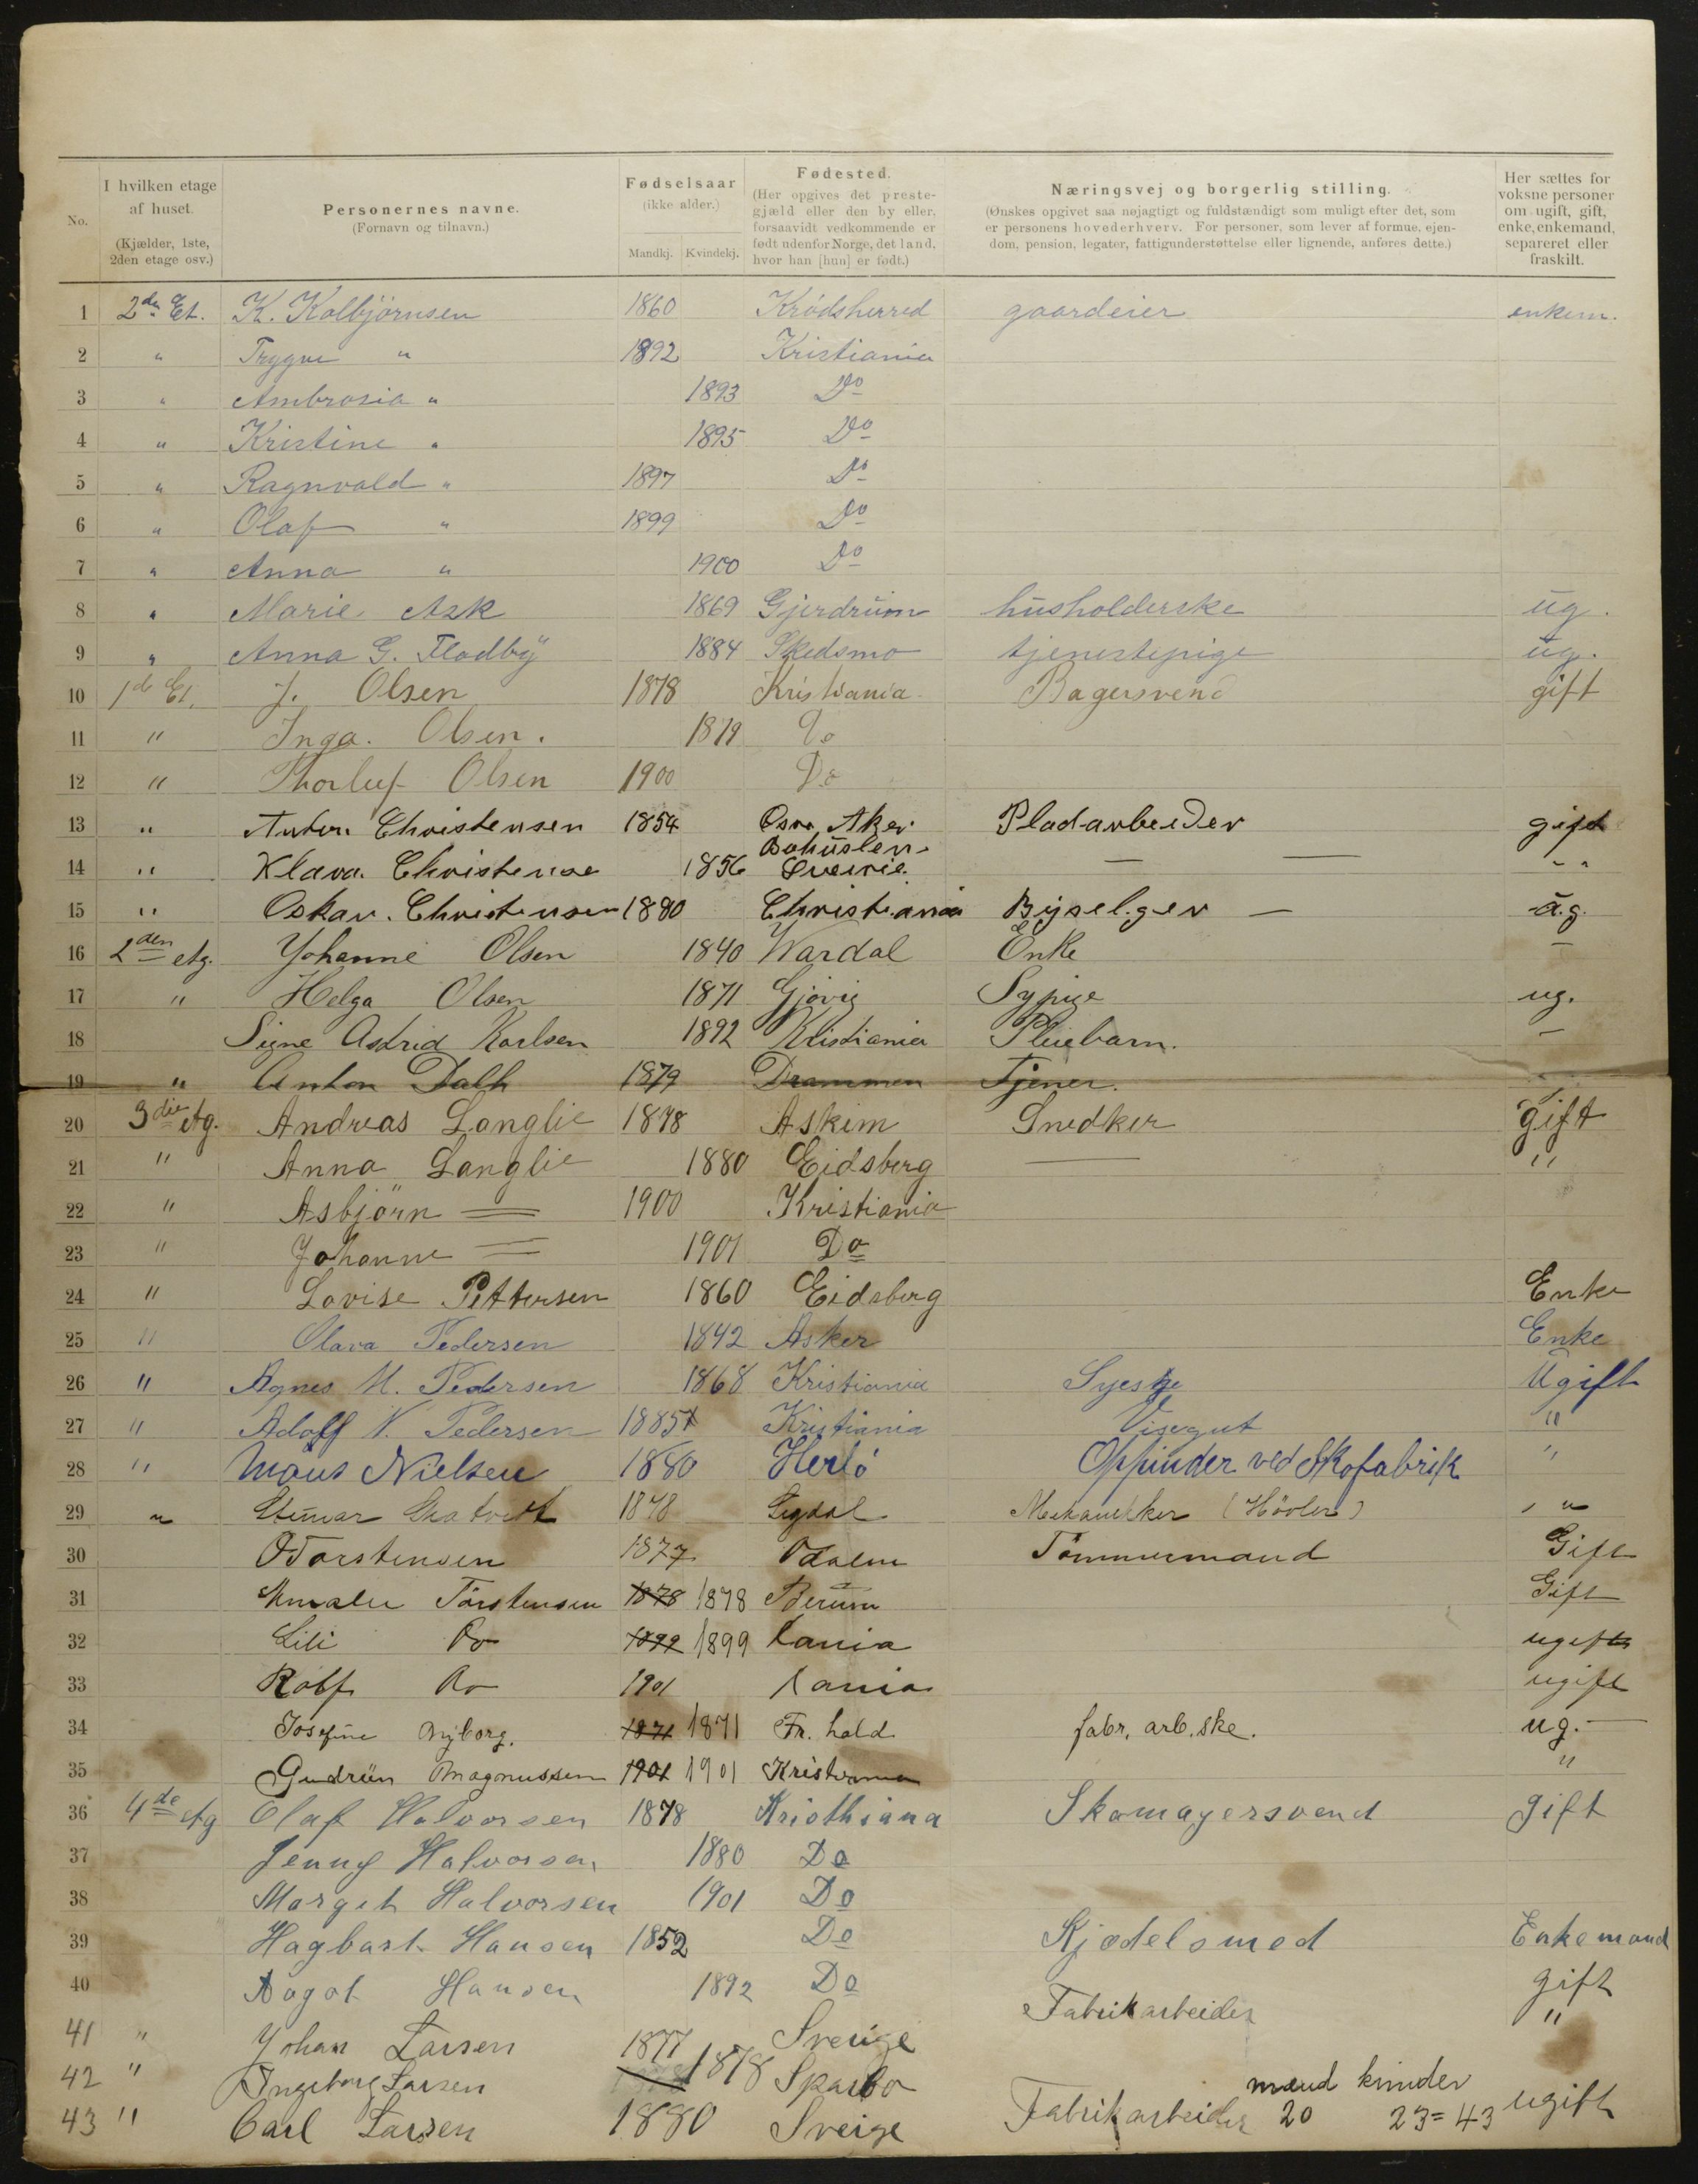 No.
I hvilken etage af huset. (Kjælder, 1ste, 2den etage osv.)
Personernes navne. (Fornavn og tilnavn.)
Fødselsaar (ikke alder.) Mandkj. Kvindekj.
Fødested. (Her opgives det prestegjæld eller den by eller, forsaavidt vedkommende er født udenfor Norge, det land, hvor han [hun] er født.)
Næringsvej og borgerlig stilling. (Ønskes opgivet saa nøjagtigt og fuldstændigt som muligt efter det, som er personens hovederhverv. For personer, som lever af formue, ejendom, pension, legater, fattigunderstøttelse eller lignende, anføres dette.)
Her sættes for voksne personer om ugift, gift, enke, enkemand, separeret eller fraskilt.
1 2den Et. K. Kolbjörnsen 1860 Krødsherred gaardeier enkem.
2 " Trygve " 1892 Kristiania
3 " Ambrosia " 1893 Do
4 " Kristine " 1895 Do
5 " Ragnvald " 1897 Do
6 " Olaf " 1899 Do
7 " Anna " 1900 Do
8 " Marie Ask 1869 Gjerdrum husholderske ug.
9 " Anna G. Flodby 1884 Skedsmo tjenestepige ug.
10 1de Et. J. Olsen 1878 Kristiania Bagersvend gift
11 " Inga. Olsen. 1879 Do
12 " Thorluf Olsen 1900 Do
13 " Anton Christensen 1854 Aker Pladarbeider gift
14 " Klara. Christense 1856 Bohuslen Sverrie. — — " "
15 " Oskar. Christensen 1880 Christiania Bijselger — ug.
16 2den etg. Johanne Olsen 1840 Wardal Enke —
17 " Helga Olsen 1871 Gjøvig Sypige ug.
18 Signe Astrid Karlsen 1892 Kristiania Pleiebarn. —
19 " Anton Dalh 1879 Drammen Tjener.
20 3die etg. Andreas Langlie 1878 Askim Snedker gift
21 " Anna Langlie 1880 Eidsberg — "
22 " Asbjörn = 1900 Kristiania
23 " Johanne = 1901 Do
24 " Lovise Pettersen 1860 Eidsberg Enke
25 " Olava Pedersen 1842 Asker Enke
26 " Agnes M. Pedersen 1868 Kristiania Syeske Ugift
27 " Adolf V. Pedersen 1885 Kristiania Visegut "
28 " Maus Nielsen 1880 Herlö Oppinder ved Skofabrik "
29 " 1878 Sigdal (Hövler) "
30 O Torstensen 1877 Odalen Tömmermand Gift
31 Torstensen 1878 1878 Berum Gift
32 Lili Do 1899 1899 Kania ugift
33 Rolf Do 1901 Kania ugift
34 Josefine Nyborg. 1871 1871 Fr. hald fabr. arb. ske. ug. —
35 Gudrun Magnussen 1901 1901 Kristiania "
36 4de etg Olaf Halvorsen 1878 Kristhiana Skomagersvend gift
37 Jenny Halvorsen 1880 Do
38 Margit Halvorsen 1901 Do
39 Hagbart Hansen 1852 Do Kjædelsmed Enkemand
40 Aagot Hansen 1892 Do gift
41 " Johan Larsen 1877 Sverige Fabrikarbeider "
42 " Ingeborg Larsen 1878 Sparbo
43 " Carl Larsen 1880 Sverige Fabrikarbeider ugift
mænd kvinder
20 23 = 43